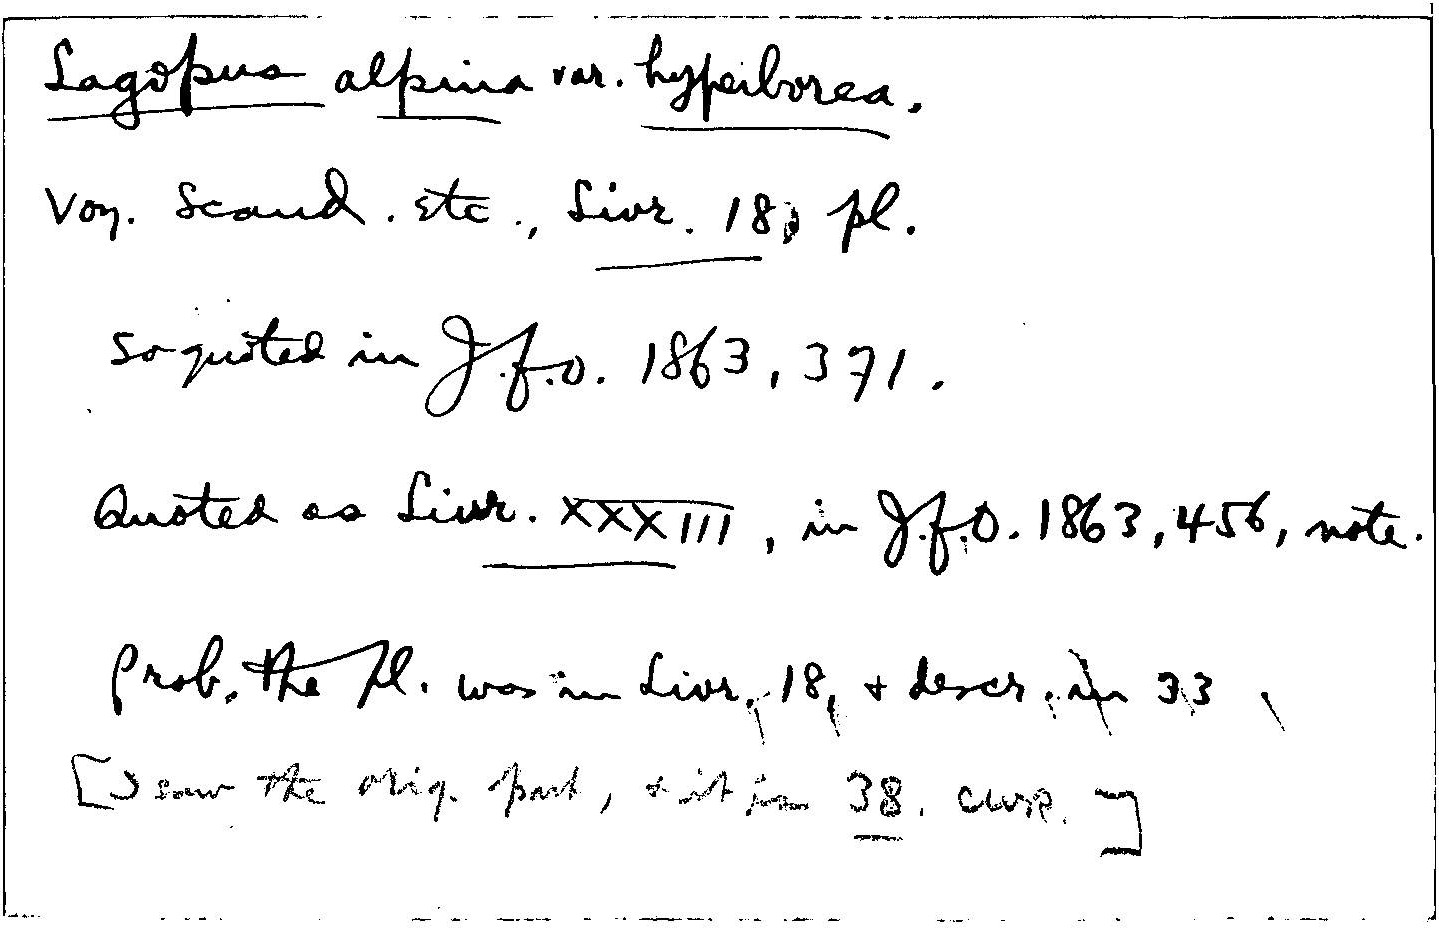 Lagopus alpina var. hyperborea.
Voy. Scand. etc., Livr. 18, pl.
So quoted in J.f.O. 1863, 371.
Quoted as Livr. XXXIII, in J.f.O. 1863, 456, note.
Prob. the pl. was in Livr. 18, + descr. in 33
[I saw the orig. part, + it is 38. CWR.]